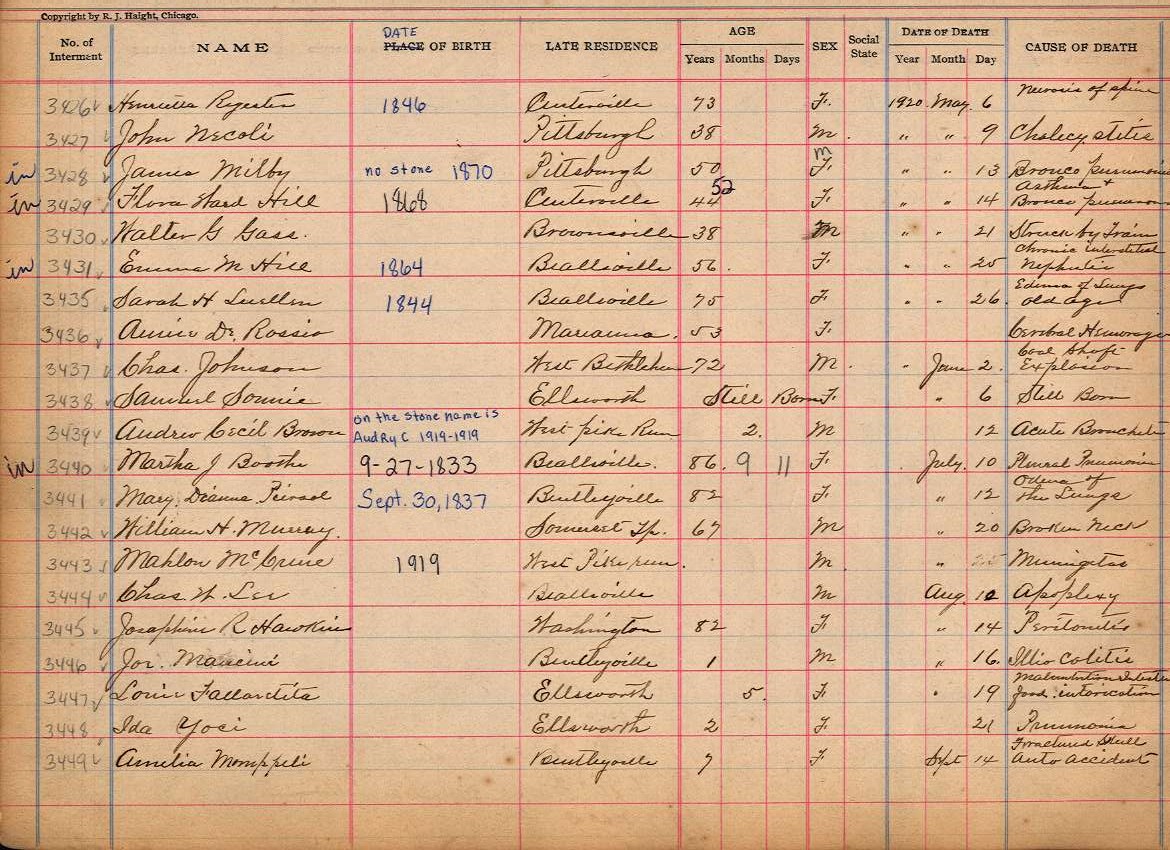 Copyright by R. J. Haight, Chicago.
No. of Interment NAME DATE PLACE OF BIRTH LATE RESIDENCE AGE Years Months Days SEX Social State DATE OF DEATH Year Month Day CAUSE OF DEATH
3426 Henrietta Regester 1846 Centerville 73 F. 1920 May 6 Neurosis of spine
3427 John Necoli Pittsburgh 38 M. " " 9 Cholecystitis
in 3428 James Milby no stone 1870 Pittsburgh 50 F. m " " 13 Bronco pneumonia
in 3429 Flora Ward Hill 1868 Centerville 44 52 F. " " 14 Asthma + Bronco pneumonia
3430 Walter G Gass. Brownsville 38 M " " 21 Struck by Train
in 3431 Emma M Hill 1864 Beallsville 56. F. " " 25 Chronic interstitial Nephritis
3435 Sarah H Luellen 1844 Beallsville 75 F. " " 26. Edema of Lungs old age
3436 Annie De Rossio Marianna. 53 F. Cerebral Hemorage
3437 Chas. Johnson West Bethlehem 72 M. " June 2. Coal Shaft Explosion
3438 Samuel Sonnie Ellsworth Still Born F. " 6 Still Born
3439 Andrew Cecil Brown on the stone name is AudRy C 1919-1919 West pike Run 2. M 12 Acute Bronchitis
in 3440 Martha J Boothe 9-27-1833 Beallsville. 86. 9 11 F. July. 10 Plural Pneumonia
3441 Mary Dianna Peirsol Sept. 30, 1837 Bentleyville 82 F. " 12 Odema of the Lungs
3442 William H. Murray. Somerset Tp. 67 M " 20 Broken Neck
3443 Mahlon McCrue 1919 West Pike run. M " Meningitas
3444 Chas W. Lee Beallsville M Aug. 10 Apoplexy
3445 Josephine R Hawkins Washington 82 F " 14 Peritonitis
3446 Jos. Mancini Bentleyville 1 M " 16. Illio Colitis
3447 Louie Ellsworth 5. F. " 19 food intoxication
3448 Ida Yoci Ellsworth 2 F. 21 Pnumonia
3449 Amelia Momppeli Bentleyville 7 F Sept 14 Fractured Skull Auto accident